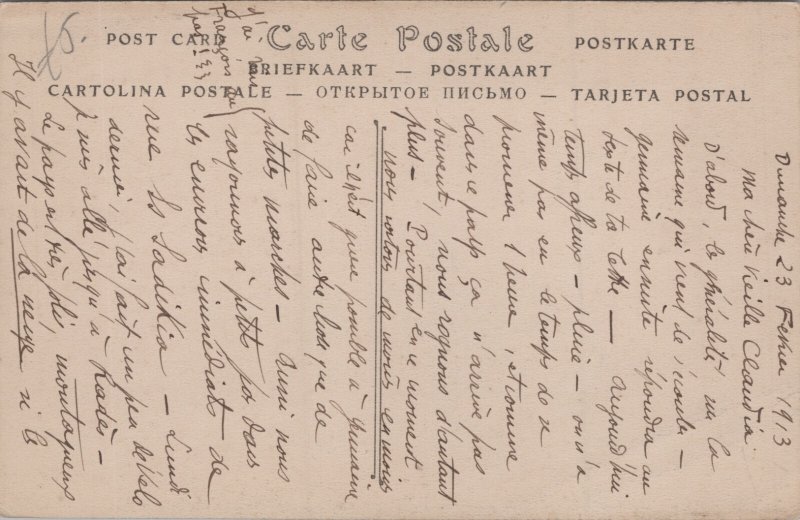 POST CARD Carte Postale POSTKARTE
BRIEFKAART — POSTKAART
CARTOLINA POSTALE — ОТКРЫТОЕ ПИСЬМО — TARJETA POSTAL
Dimanche 23 Fevrier 1913
Ma chère Vieille Claudia
D'abord, la généralité sur la
semaine qui vient de s'écouler —
Germaine ensuite répondra au
texte de ta lettre — Aujourd'hui
temps affreux — pluie — on n'a
même pas eu le temps de se
promener 1 heure, et comme
dans ce pays ça n'arrive pas
souvent, nous rognons d'autant
plus — Pourtant en ce moment
nous sortons de moins en moins
car il n'est guère possible à Germaine
de faire autre chose que de
petites marches — Aussi nous
rayonnons à petits pas dans
les environs immédiats de
rue Es Sadikia — Lundi
dernier, j'ai fait un peu de vélo
je suis allé jusqu'à Radès —
Le pays est très joli montagneux
Il y avait de la neige si le
j'ai
François